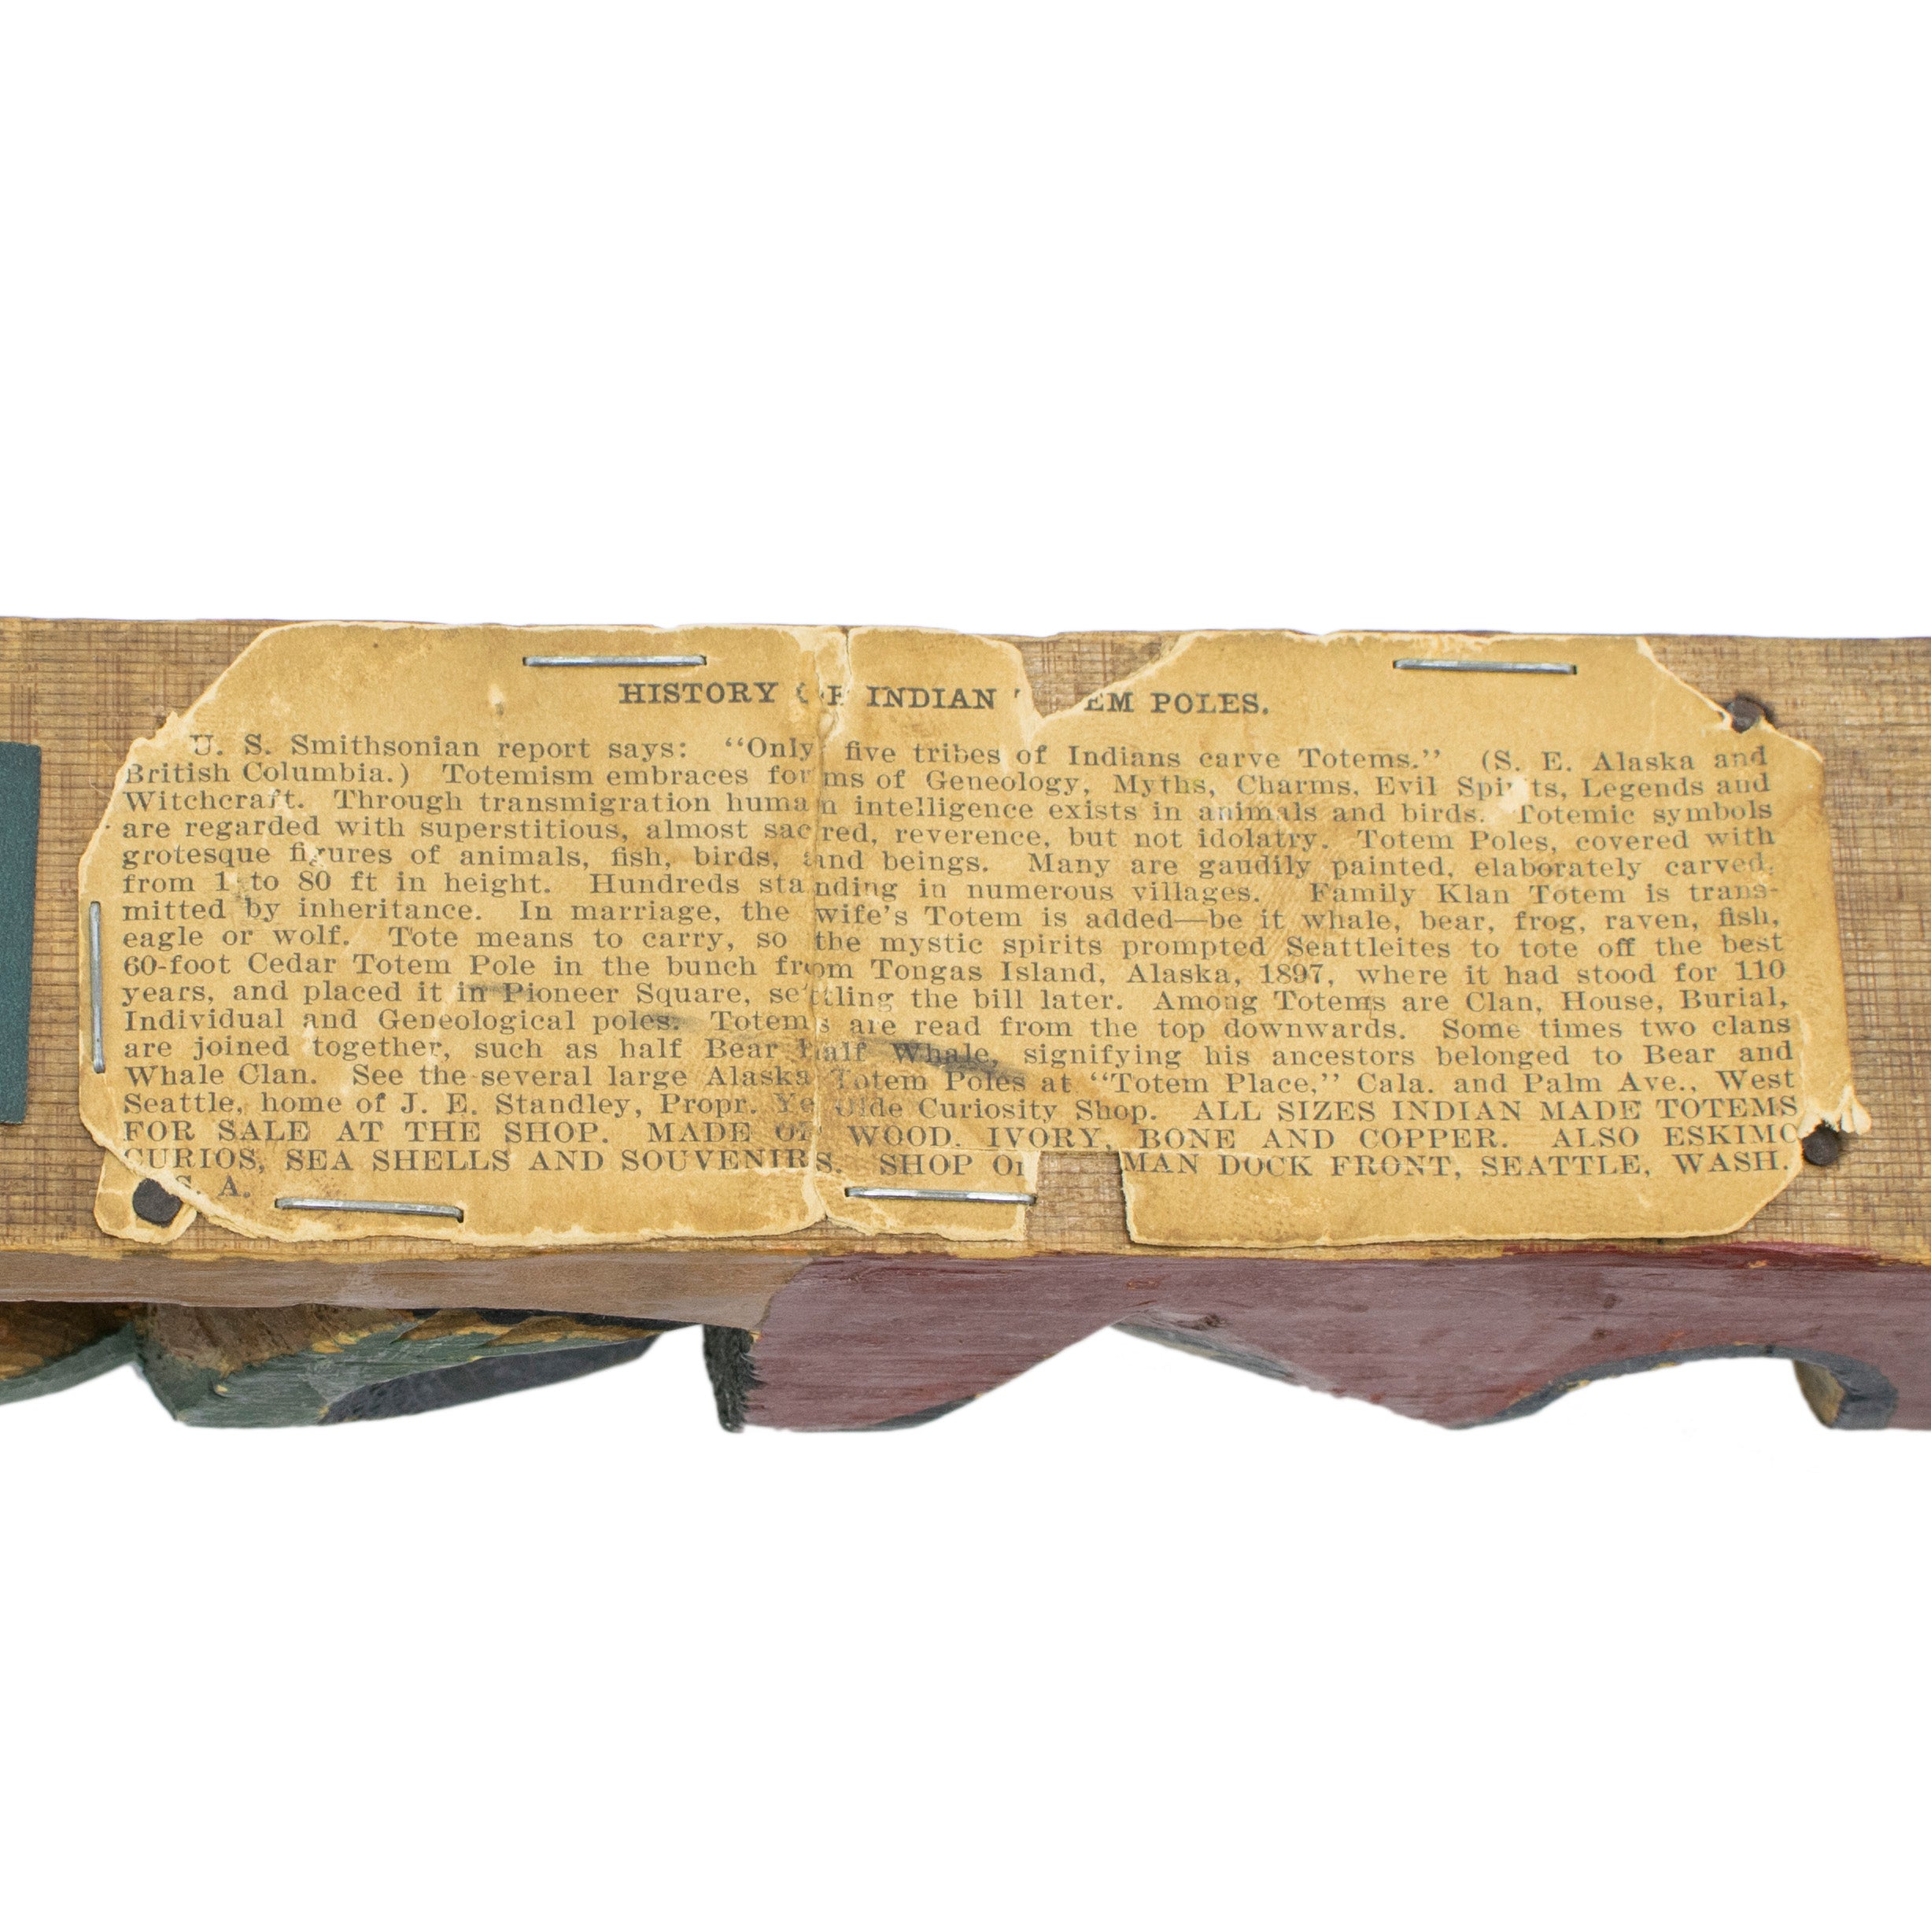 HISTORY OF INDIAN TOTEM POLES.
U. S. Smithsonian report says: “Only five tribes of Indians carve Totems.” (S. E. Alaska and
British Columbia.) Totemism embraces forms of Geneology, Myths, Charms, Evil Spirits, Legends and
Witchcraft. Through transmigration human intelligence exists in animals and birds. Totemic symbols
are regarded with superstitious, almost sacred, reverence, but not idolatry. Totem Poles, covered with
grotesque figures of animals, fish, birds, and beings. Many are gaudily painted, elaborately carved,
from 1 to 80 ft in height. Hundreds standing in numerous villages. Family Klan Totem is trans-
mitted by inheritance. In marriage, the wife’s Totem is added—be it whale, bear, frog, raven, fish,
eagle or wolf. Tote means to carry, so the mystic spirits prompted Seattleites to tote off the best
60-foot Cedar Totem Pole in the bunch from Tongas Island, Alaska, 1897, where it had stood for 110
years, and placed it in Pioneer Square, settling the bill later. Among Totems are Clan, House, Burial,
Individual and Geneological poles. Totems are read from the top downwards. Some times two clans
are joined together, such as half Bear half Whale, signifying his ancestors belonged to Bear and
Whale Clan. See the several large Alaska Totem Poles at “Totem Place,” Cala. and Palm Ave., West
Seattle, home of J. E. Standley, Propr. Ye Olde Curiosity Shop. ALL SIZES INDIAN MADE TOTEMS
FOR SALE AT THE SHOP. MADE OF WOOD, IVORY, BONE AND COPPER. ALSO ESKIMO
CURIOS, SEA SHELLS AND SOUVENIRS. SHOP MAN DOCK FRONT, SEATTLE, WASH.
S. A.